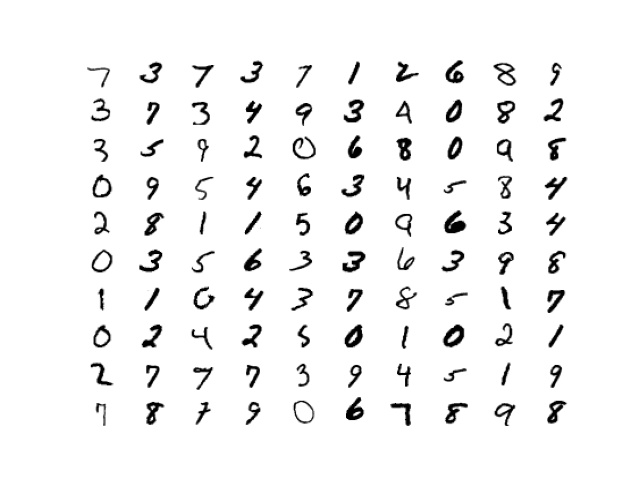 7 3 7 3 7 1 2 6 8 9
3 7 3 4 9 3 4 0 8 2
3 5 9 2 0 6 8 0 9 8
0 9 5 4 6 3 4 5 8 4
2 8 1 1 5 0 9 6 3 4
0 3 5 6 3 3 6 3 9 8
1 1 0 4 3 7 8 5 1 7
0 2 4 2 5 0 1 0 2 1
2 7 7 7 3 9 4 5 1 9
7 8 7 9 0 6 7 8 9 8